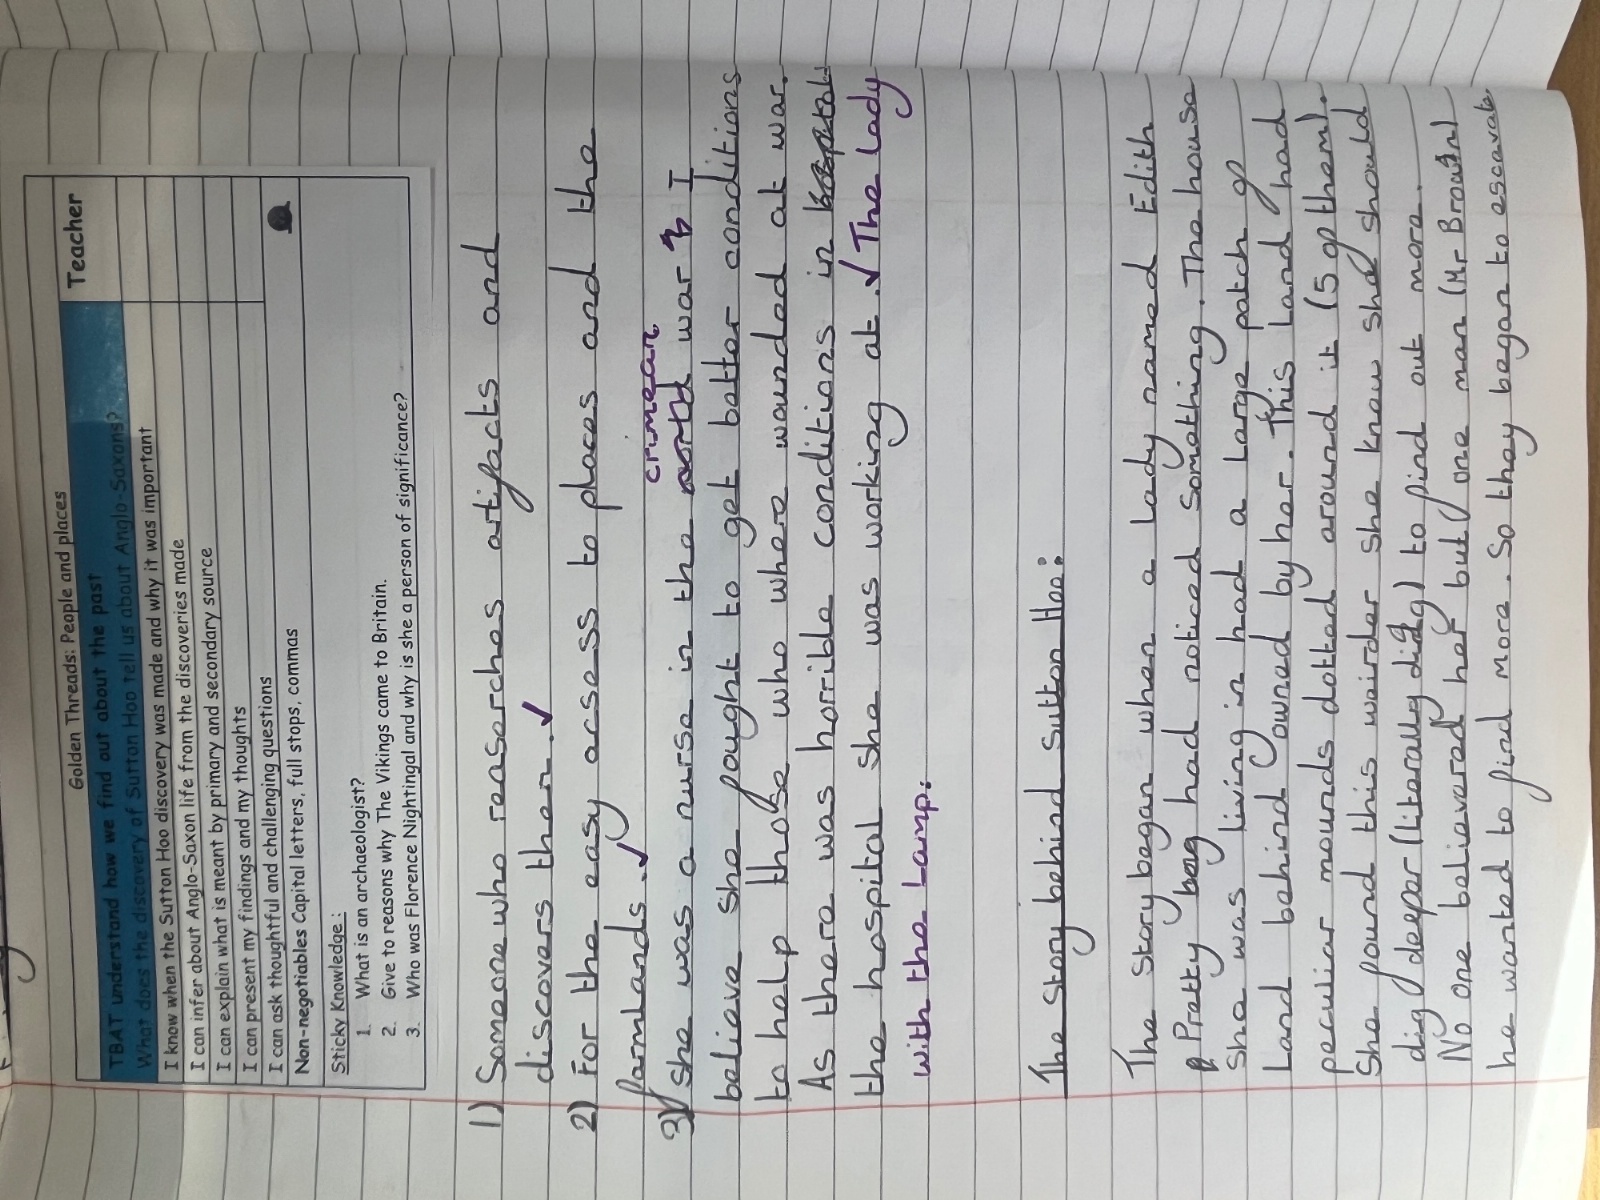 Golden Threads: People and places
TBAT understand how we find out about the past
Teacher
What does the discovery of Sutton Hoo tell us about Anglo-Saxons?
I know when the Sutton Hoo discovery was made and why it was important
I can infer about Anglo-Saxon life from the discoveries made
I can explain what is meant by primary and secondary source
I can present my findings and my thoughts
I can ask thoughtful and challenging questions
Non-negotiables Capital letters, full stops, commas
Sticky Knowledge:
1. What is an archaeologist?
2. Give to reasons why The Vikings came to Britain.
3. Who was Florence Nightingal and why is she a person of significance?
1) Someone who reaserches artifacts and
discovers them. ✓
2) For the easy acsess to places and the
farmlands. ✓
crimean
3) She was a nurse in the war I
believe she fought to get better conditions
to help those who where wounded at war.
As there was horrible conditions in
the hospital she was working at. ✓ The Lady
with the Lamp.
The story behind Sutton Hoo:
The story began when a Lady named Edith
Pretty had noticed something. The house
she was living in had a Large patch of
Land behind owned by her. This Land had
peculiar mounds dotted around it (5 of them).
She found this weirder she knew she should
dig deeper (literally dig) to find out more.
No one believered her but one man (Mr Brown)
he wanted to find more. So they began to escavate